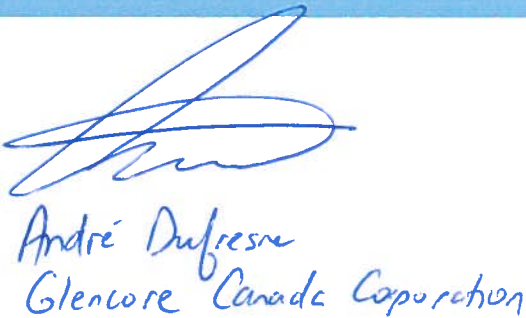 André Dufresne
Glencore Canada Coporation